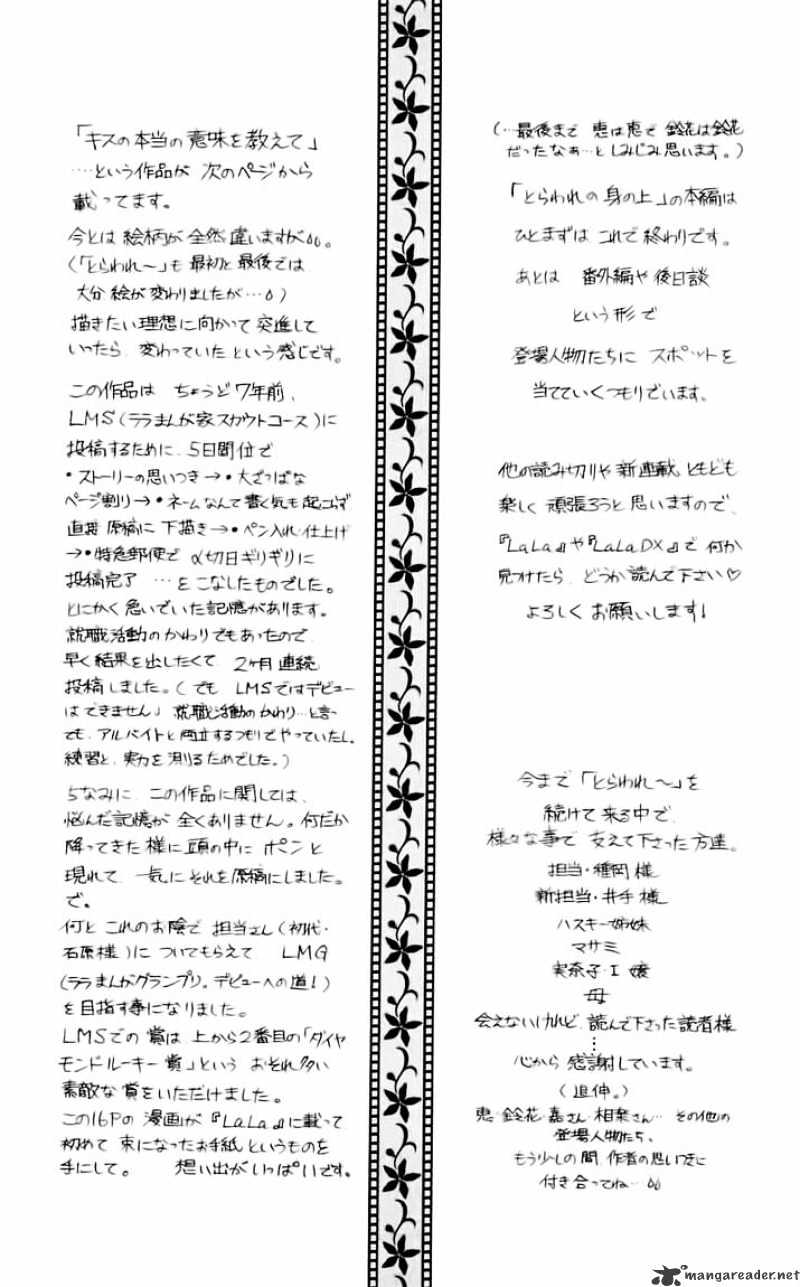 (…最後まで 恵は恵で 鈴花は鈴花
だったなぁ…と しみじみ思います。)
「とらわれの 身の上」の本編は
ひとまずは これで 終わりです。
あとは 番外編や 後日談
という形で
登場人物たちに スポットを
当てていくつもりでいます。
他の読み切りや 新連載ともども
楽しく 頑張ろうと 思いますので、
『LaLa』や『LaLaDX』で 何か
見つけたら、どうか 読んで下さい♡
よろしく お願いします!
今まで「とらわれ〜」を
続けて 来る中で、
様々な事で 支えて下さった方達。
担当・種岡 様
新担当・井手 様
ハスキー姉妹
マサミ
実奈子・I 嬢
母
会えないけれど、読んで下さった読者様
…
心から 感謝しています。
(追伸。)
恵・鈴花・嘉さん・相楽さん… その他の
登場人物たち、
もう少しの間、作者の思いつきに
付き合ってね…
「キスの本当の意味を教えて」
…という作品が 次のページから
載ってます。
今とは 絵柄が 全然 違いますが。
(「とらわれ〜」も 最初と最後では
大分 絵が変わりましたが…)
描きたい理想に向かって 突進して
いったら、変わっていた という感じです。
この作品は ちょうど7年前、
LMS(ララまんが家スカウトコース)に
投稿するために、5日間位で
・ストーリーの思いつき→・大ざっぱな
ページ割り→・ネームなんて書く気も起こらず
直接 原稿に 下描き→・ペン入れ・仕上げ
→・特急郵便で 〆切日ギリギリに
投稿完了 …を こなしたものでした。
とにかく 急いでいた記憶があります。
就職活動のかわりでもあったので、
早く結果を出したくて 2ヶ月 連続
投稿しました。(でも LMSではデビュー
はできません」就職活動のかわり…と言っ
ても、アルバイトと両立するつもりでやっていたし、
練習と、実力を測るためでした。)
ちなみに、この作品に関しては、
悩んだ記憶が 全くありません。何だか
降ってきた 様に 頭の中に ポンと
現れて 一気に それを原稿にしました。
で。
何と これのお陰で 担当さん(初代・
石原様)に ついてもらえて LMG
(ララまんがグランプリ。デビューへの道!)
を目指す事になりました。
LMSでの 賞は 上から2番目の「ダイヤ
モンドルーキー賞」という おそれ多い
素敵な 賞をいただけました。
この16Pの 漫画が『LaLa』に載って
初めて 束になったお手紙というものを
手にして。 想い出がいっぱいです。
mangareader.net